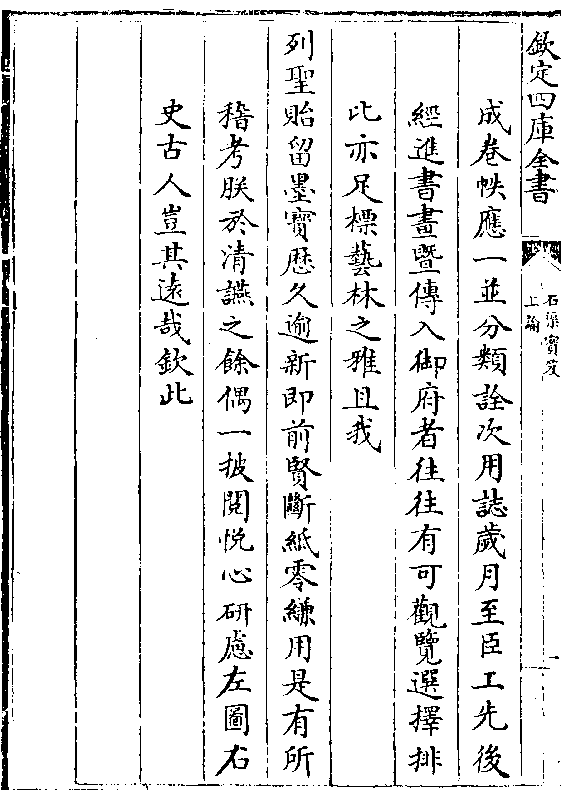 欽定四庫全書
石渠寶笈
上諭
一
成卷帙應一並分類詮次用誌歲月至臣工先後
經進書畫暨傳入御府者往往有可觀覽選擇排
比亦足標藝林之雅且我
列聖貽留墨寶歴久逾新即前賢斷紙零縑用是有所
稽考朕於清讌之餘偶一披閱悅心研慮左圖右
史古人豈其遠哉欽此